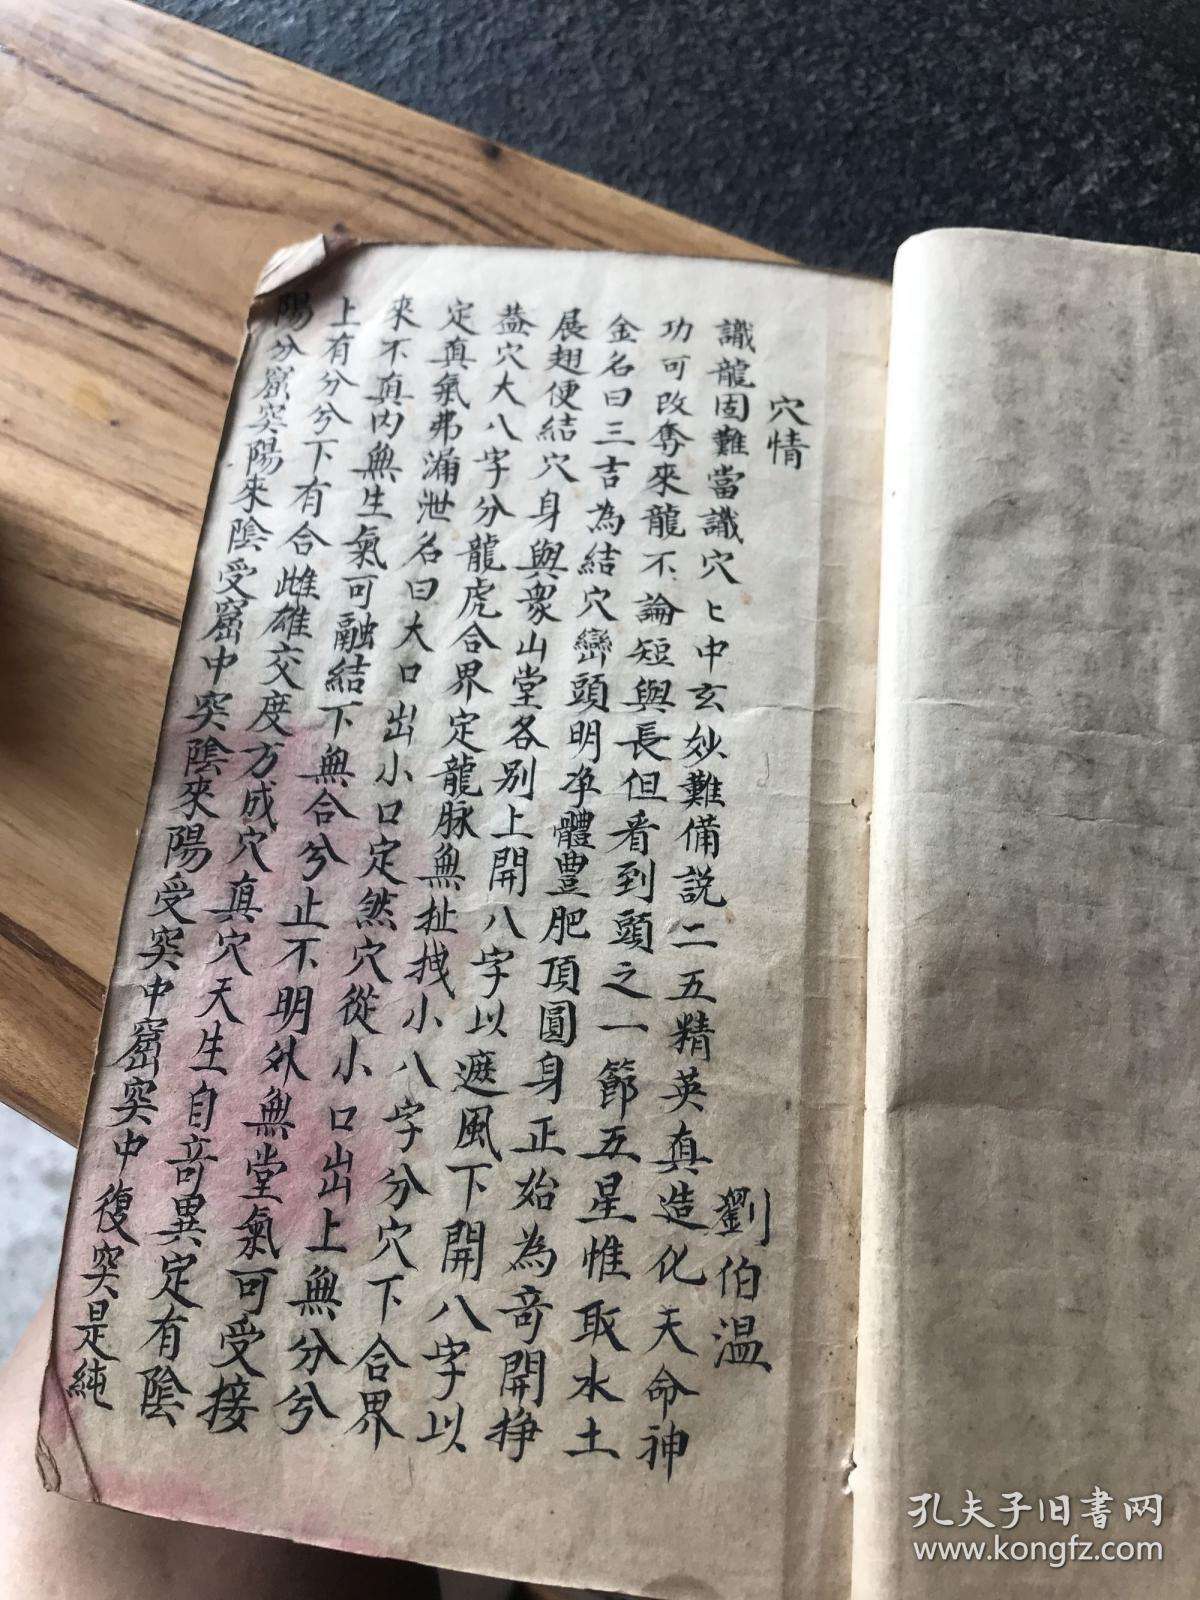 穴情
劉伯温
識龍固難當識穴〻中玄妙難備説二五精英真造化天命神
功可改奪來龍不論短與長但看到頭之一節五星惟取水土
金名曰三吉為結穴巒頭明净體豐肥頂圓身正始為奇開挣
展翅便結穴身與衆山堂各別上開八字以遮風下開八字以
葢穴大八字分龍虎合界定龍脉無扯拽小八字分穴下合界
定真氣弗漏泄名曰大口出小口定然穴從小口出上無分兮
來不真内無生氣可融結下無合兮止不明外無堂氣可受接
上有分兮下有合雌雄交度方成穴真穴天生自奇異定有陰
陽分窟突陽來陰受窟中突陰來陽受突中窟突中復突是純
孔夫子旧书网
www.kongfz.com